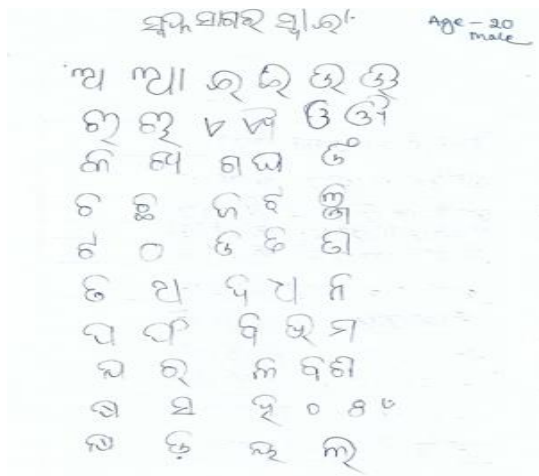 ସାଗର Age - 20
male
ଅ ଆ ଇ ଈ ଉ ଊ
ଋ ୠ ଏ ଐ ଓ ଔ
କ ଖ ଗ ଘ ଙ
ଚ ଛ ଜ ଝ ଞ
ଟ ଠ ଡ ଢ ଣ
ତ ଥ ଦ ଧ ନ
ପ ଫ ବ ଭ ମ
ଯ ର ଳ ବ ଶ
ଷ ସ ହ ଂ ଃ ଁ
କ୍ଷ ଡ଼ ୟ ଲ